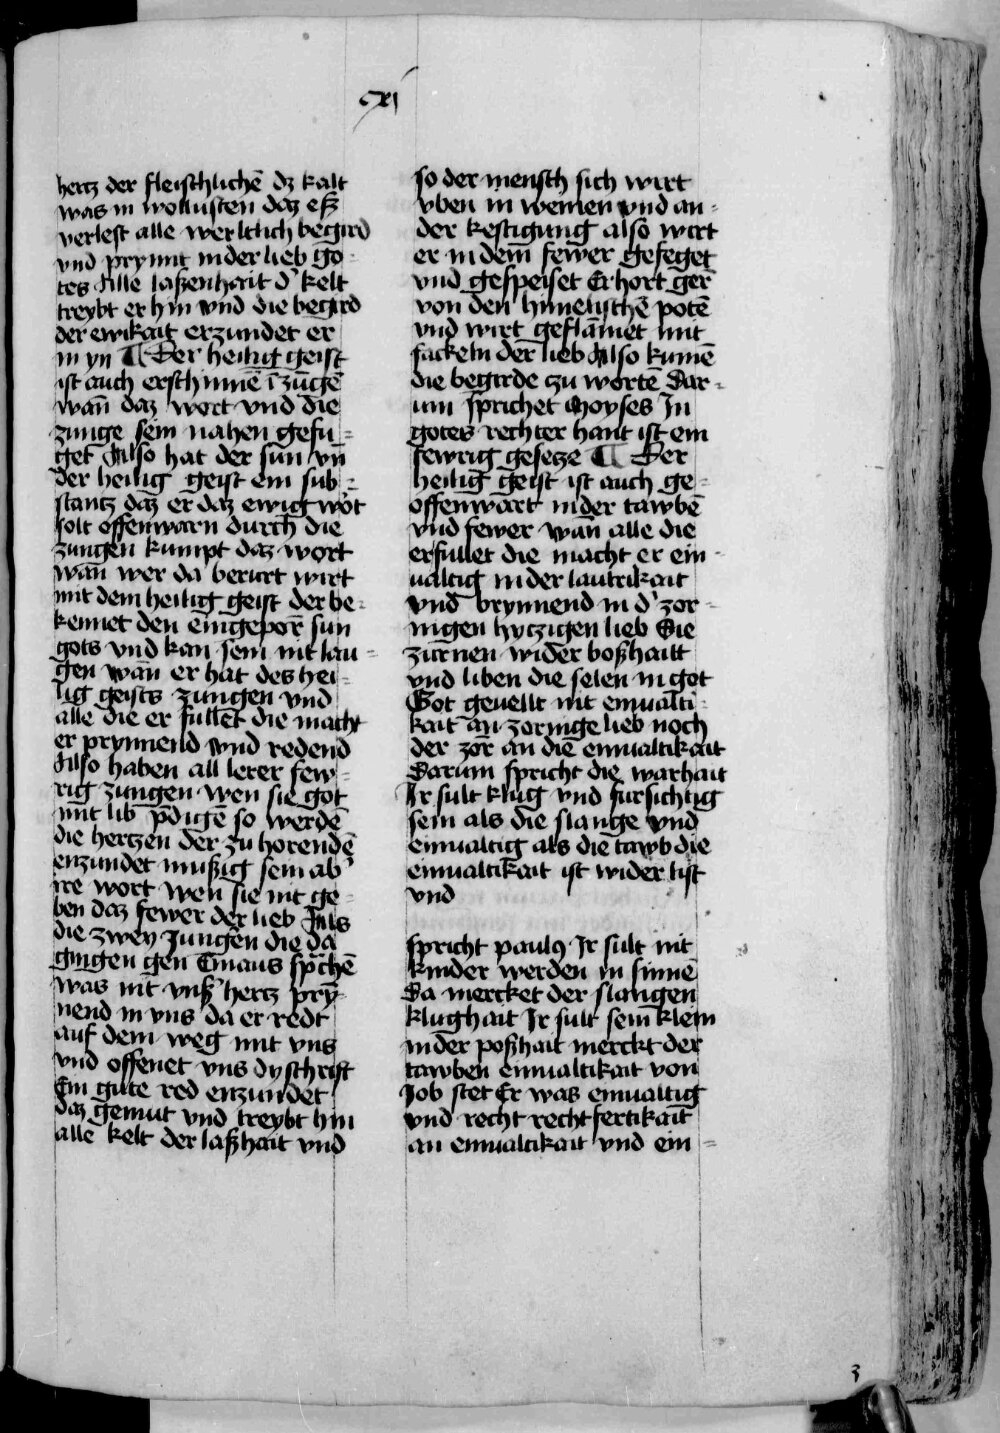 cxi
hertz der fleischlichē dz kalt
was in wollusten daz eß
verlest alle werltlich begird
vnd prynnt in der lieb go-
tes Alle laßenhait d' kelt
treybt er hin vnd die begird
der ewikait erzundet er
in yn ¶ Der heilig geist
ist auch erschinnē ī zūgē
wan̄ daz wort vnd die
zunge sein nahen gefu-
get Also hat der sun vn̄
der heilig geist ein sub-
stantz daz er daz ewig wort
solt offenwarn durch die
zungen kumpt daz wort
wan̄ wer da berurt wirt
mit dem heilig geist der be-
kennet den eingepor̄ sun
gots vnd kan sein nit lau-
gen wan̄ er hat des hei-
lig geists zungen vnd
alle die er fullet die macht
er prynnend vnd redend
Also haben all lerer few-
rig zungen wen sie got
mit lib p̄digē so werdē
die hertzen der zu horendē
enzundet mußig sein ab'
ire wort wen sie nit ge-
ben daz fewer der lieb Als
die zwen Jungen die da
gingen gen Emaus sp̄chē
was nit vnß' hertz pry̅-
nend in vns da er redt
auf dem weg mit vns
vnd offenet vns dy schrift
Ein gute red enzundet
daz gemut vnd treybt hin
alle kelt der laßhait vnd
so der mensch sich wirt
vben in weinen vnd an-
der kestigung also wirt
er in dem fewer gefeget
vnd gespeiset Er hort ger̄
von den himelischē potē
vnd wirt geflāmet mit
fackeln der lieb Also kumē
die begirde zu wortē Dar-
um sprichet Moyses Jn
gotes rechter hant ist ein
fewrig gesetze ¶ Der
heilig geist ist auch ge-
offenwart in der tawbē
vnd fewer wan̄ alle die
erfullet die macht er ein-
ualtig in der lautrikait
vnd brynnend in d' zor-
nigen hytzigen lieb Die
zurnen wider boßhaitt
vnd liben die selen in got
Got geuellt nit einualti-
kait an zornige lieb noch
der zor̄ an die einualtikait
Darum spricht die warhait
Jr sult klug vnd fursichtig
sein als die slange vnd
einualtig als die tawb die
einualtikait ist wider list
vnd
spricht paulꝰ Jr sult nit
kinder werden in sinnē
Da mercket der slangen
klughait Jr sult sein klein
in der poßhait merckt der
tawben einualtikait von
Job stet Er was einualtig
vnd recht rechtfertikait
an einualtikait vnd ein-
3